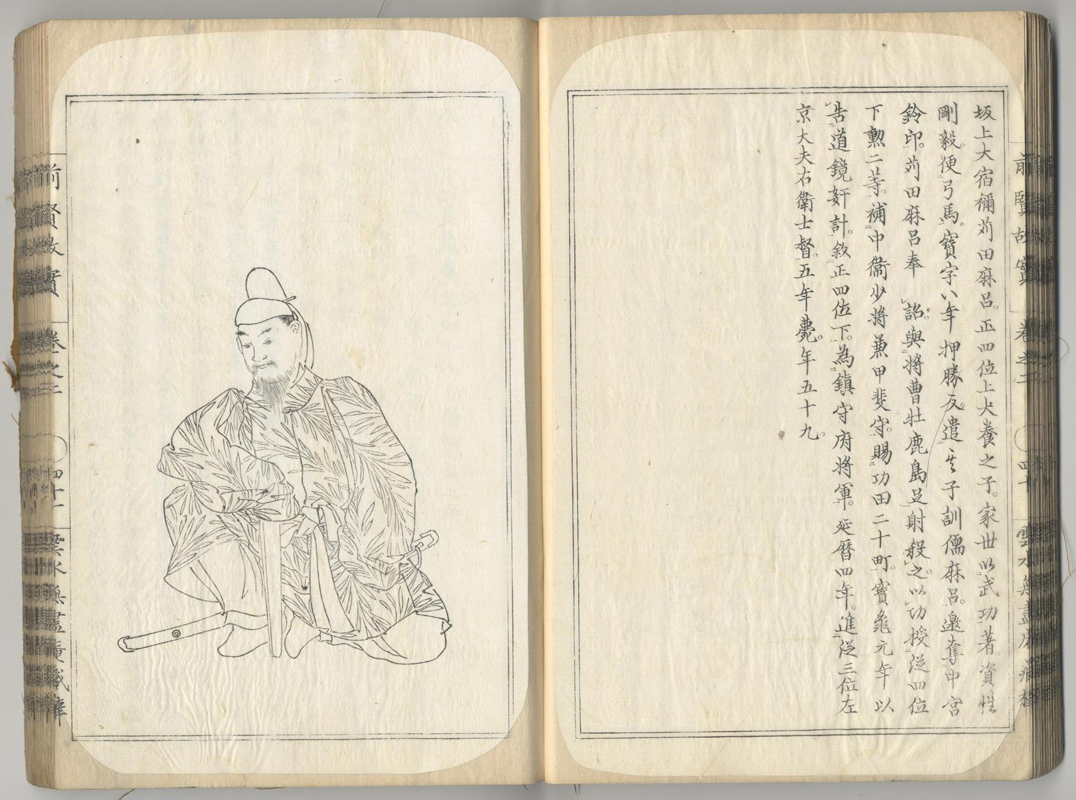 坂上大宿禰苅田麻呂。正四位上犬養之子。家世以武功著。資性
剛毅。便弓馬。寶字八年押勝反。遣其子訓儒麻呂。邀奪中宮
鈴印。苅田麻呂奉 詔與將曹牡鹿島足射殺之。以功授從四位
下勲二等。補中衞少將兼甲斐守。賜功田二十町。寶龜元年以
告道鏡奸計。敘正四位下。為鎮守府將軍。延曆四年。進從三位左
京大夫右衞士督。五年薨。年五十九。
前賢故實
卷之二
四十一